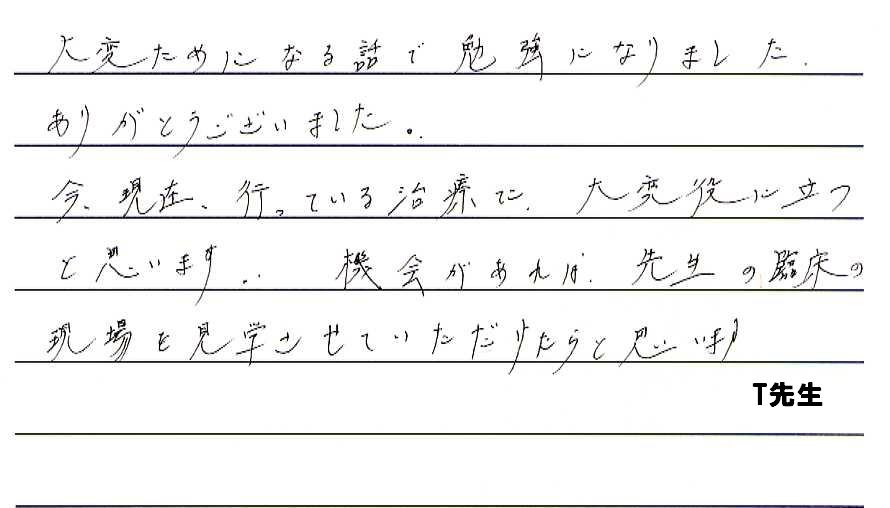 大変ためになる話で勉強になりました.
ありがとうございました。
今、現在、行っている治療に、大変役に立つ
と思います。機会があれば、先生の臨床の
現場を見学させていただけたらと思います
T先生